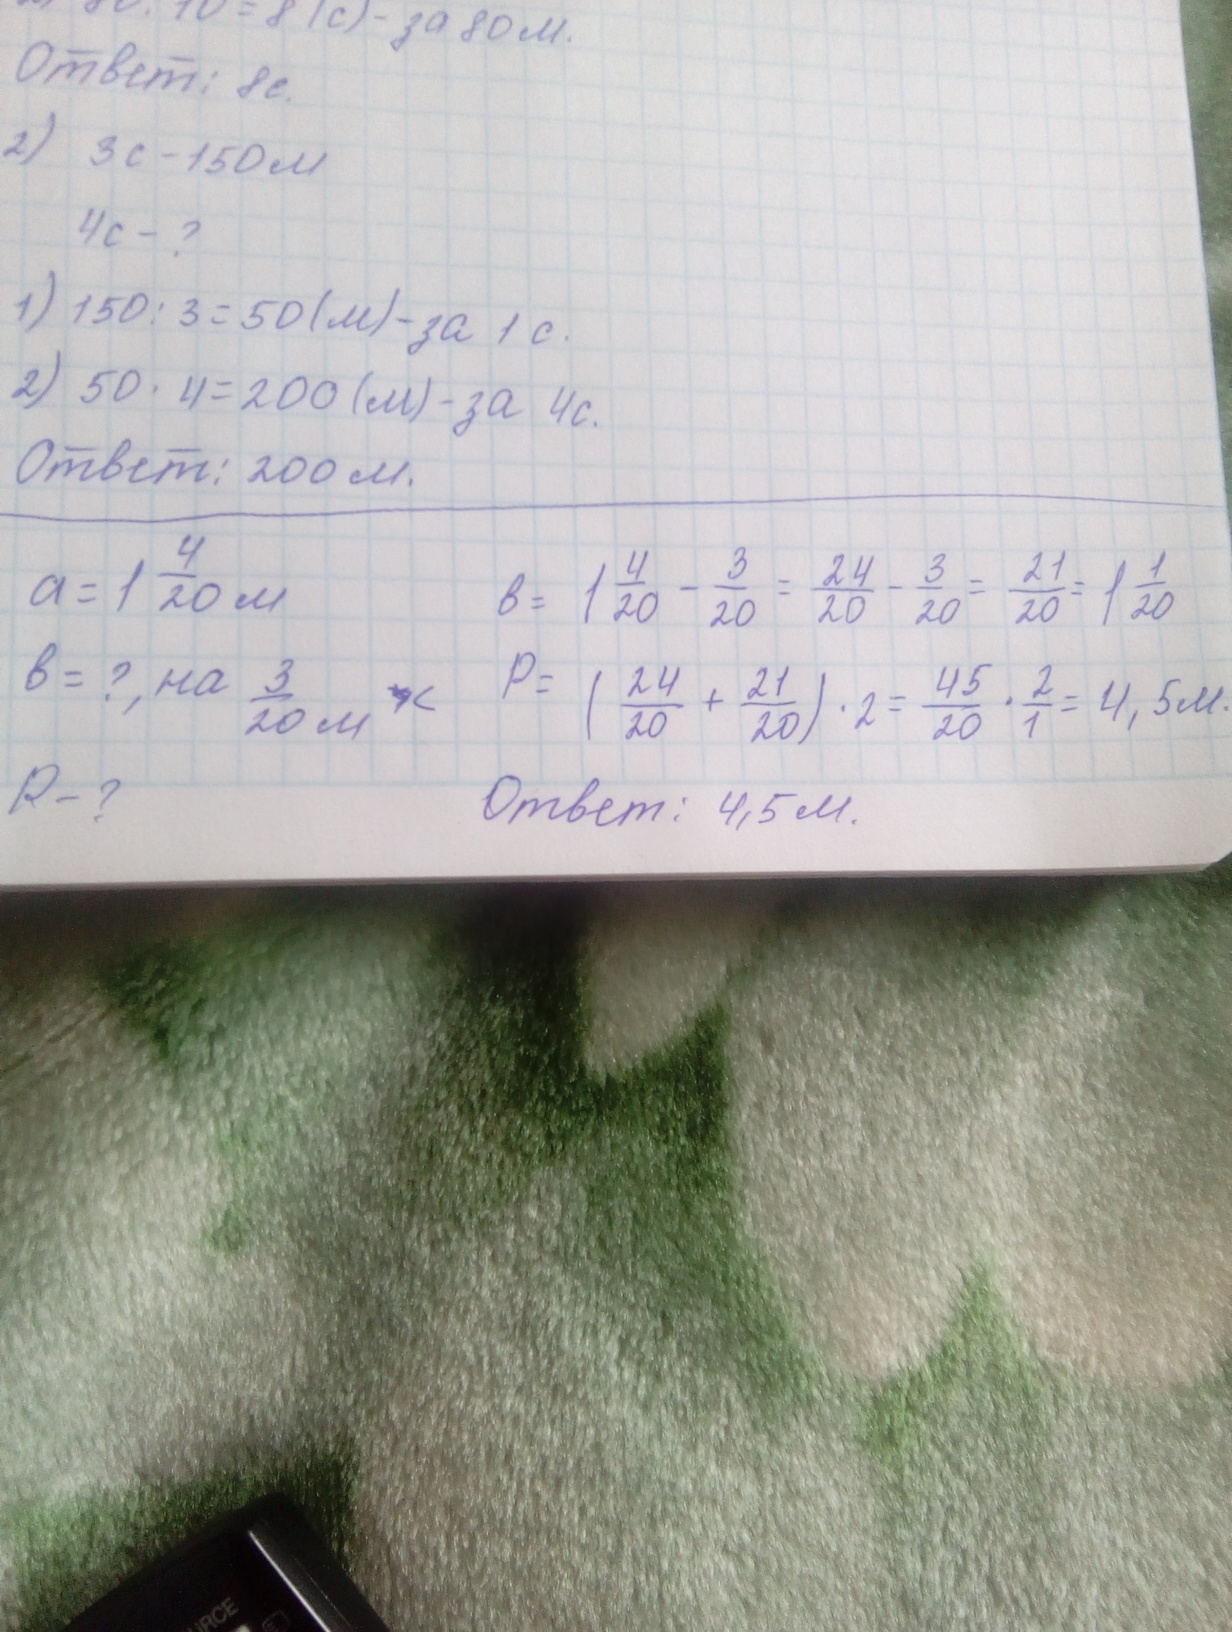 2) 80 : 10 = 8 (с) - за 80 м.
Ответ: 8с.
2) 3с - 150м
4с - ?
1) 150 : 3 = 50 (м) - за 1 с.
2) 50 · 4 = 200 (м) - за 4с.
Ответ: 200 м.
a = 1 4/20 м
в = ?, на 3/20 м <
P - ?
в = 1 4/20 - 3/20 = 24/20 - 3/20 = 21/20 = 1 1/20
P = (24/20 + 21/20) · 2 = 45/20 · 2/1 = 4,5м.
Ответ: 4,5 м.